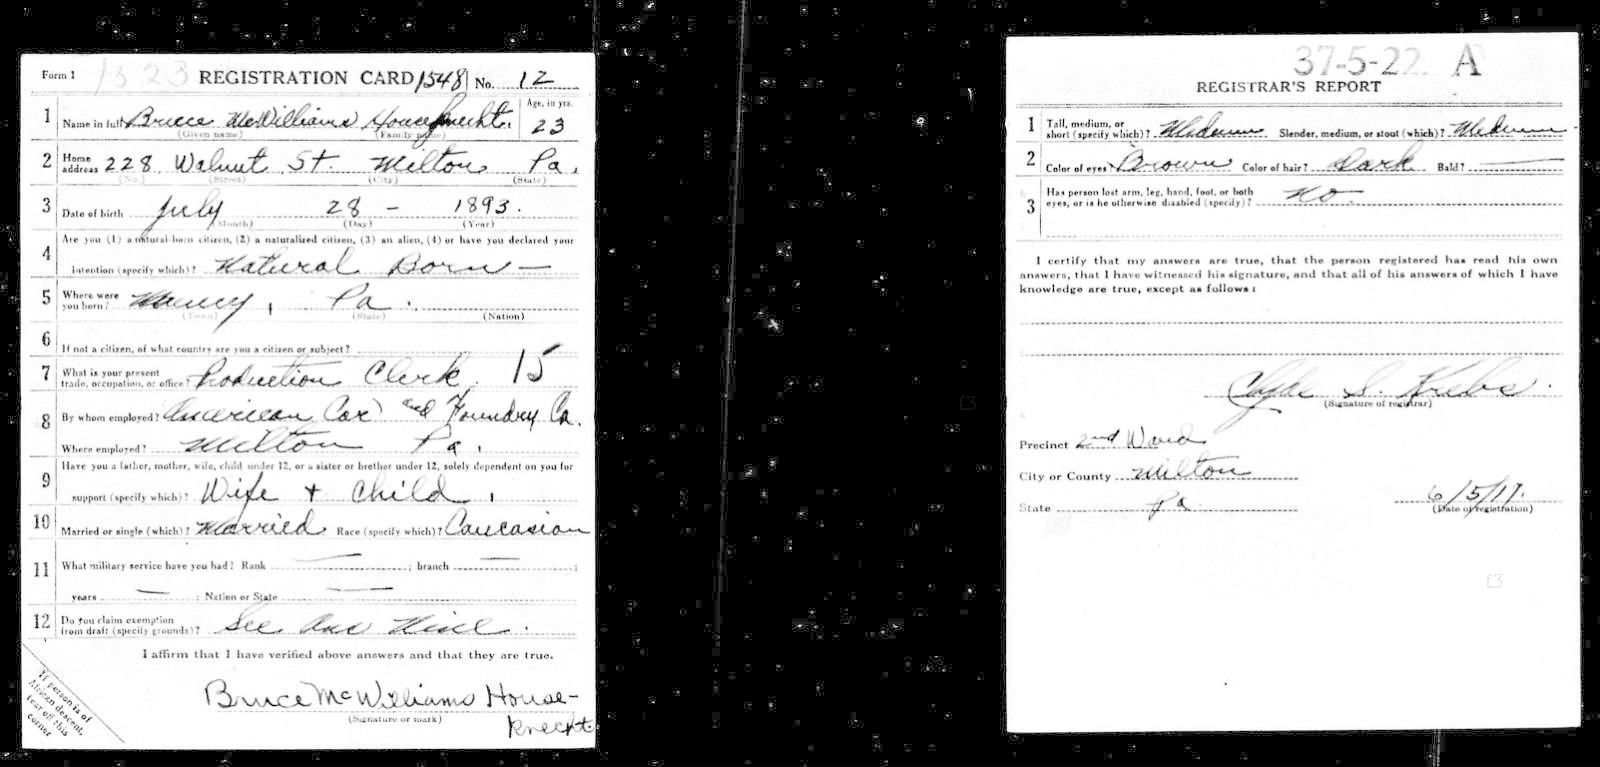 Form 1 1523 REGISTRATION CARD 1548 No. 12
1 Name in full Bruce McWilliams Houseknecht. Age, in yrs. 23
(Given name) (Family name)
2 Home address 228 Walnut St. Milton Pa.
(No.) (Street) (City) (State)
3 Date of birth July 28 - 1893.
(Month) (Day) (Year)
4 Are you (1) a natural-born citizen, (2) a naturalized citizen, (3) an alien, (4) or have you declared your
intention (specify which)? Natural Born -
5 Where were you born? Muncy, Pa.
(Town) (State) (Nation)
6 If not a citizen, of what country are you a citizen or subject?
7 What is your present trade, occupation, or office? Production Clerk. 15
8 By whom employed? American Car and Foundry Co.
Where employed? Milton Pa.
9 Have you a father, mother, wife, child under 12, or a sister or brother under 12, solely dependent on you for
support (specify which)? Wife + Child.
10 Married or single (which)? Married Race (specify which)? Caucasian
11 What military service have you had? Rank — ; branch — ;
years — ; Nation or State —
12 Do you claim exemption from draft (specify grounds)? See One Nine.
I affirm that I have verified above answers and that they are true.
Bruce McWilliams House-
(Signature or mark)
knecht.
If person is of
African descent,
tear off this
corner
37-5-22. A
REGISTRAR'S REPORT
1 Tall, medium, or short (specify which)? Medium Slender, medium, or stout (which)? Medium
2 Color of eyes? Brown Color of hair? Dark Bald? —
3 Has person lost arm, leg, hand, foot, or both eyes, or is he otherwise disabled (specify)? No.
I certify that my answers are true, that the person registered has read his own
answers, that I have witnessed his signature, and that all of his answers of which I have
knowledge are true, except as follows:
Clyde S. Krebs.
(Signature of registrar)
Precinct 2nd Ward
City or County Milton
State Pa. 6/5/17.
(Date of registration)